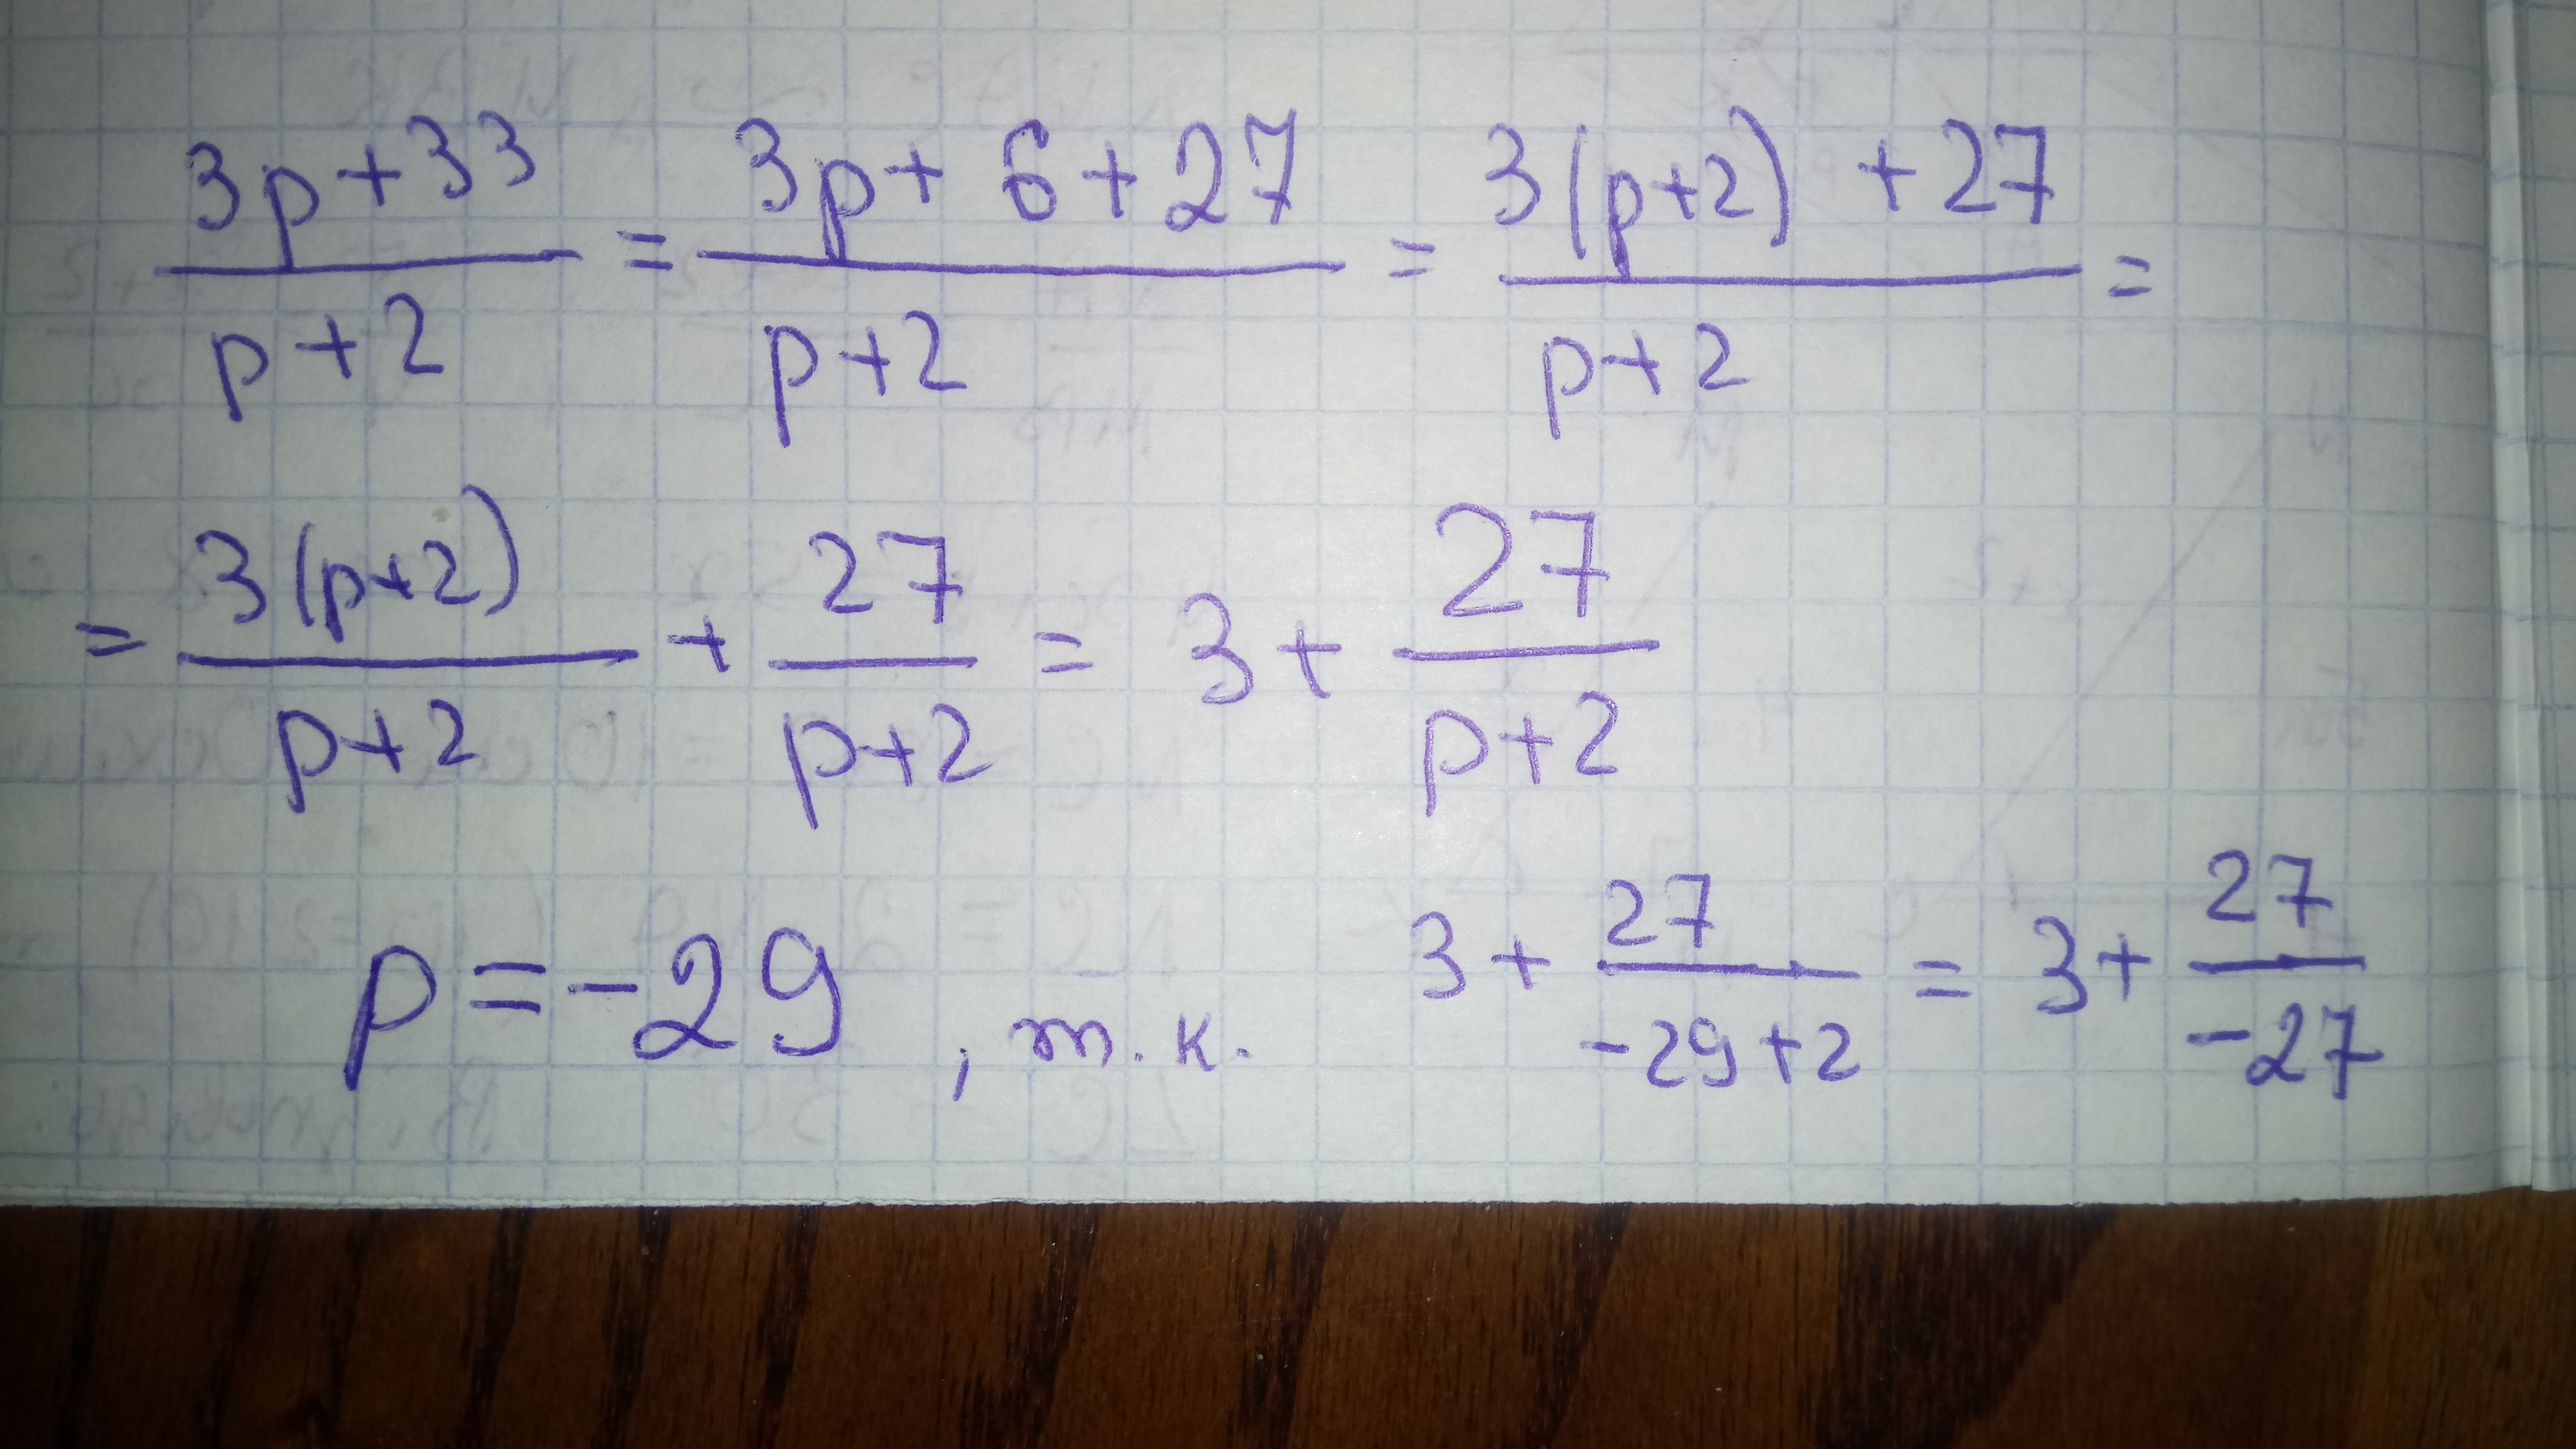 3p+33/p+2 = 3p+6+27/p+2 = 3(p+2)+27/p+2 =
= 3(p+2)/p+2 + 27/p+2 = 3+ 27/p+2
p=-29, т.к. 3+ 27/-29+2 = 3+ 27/-27